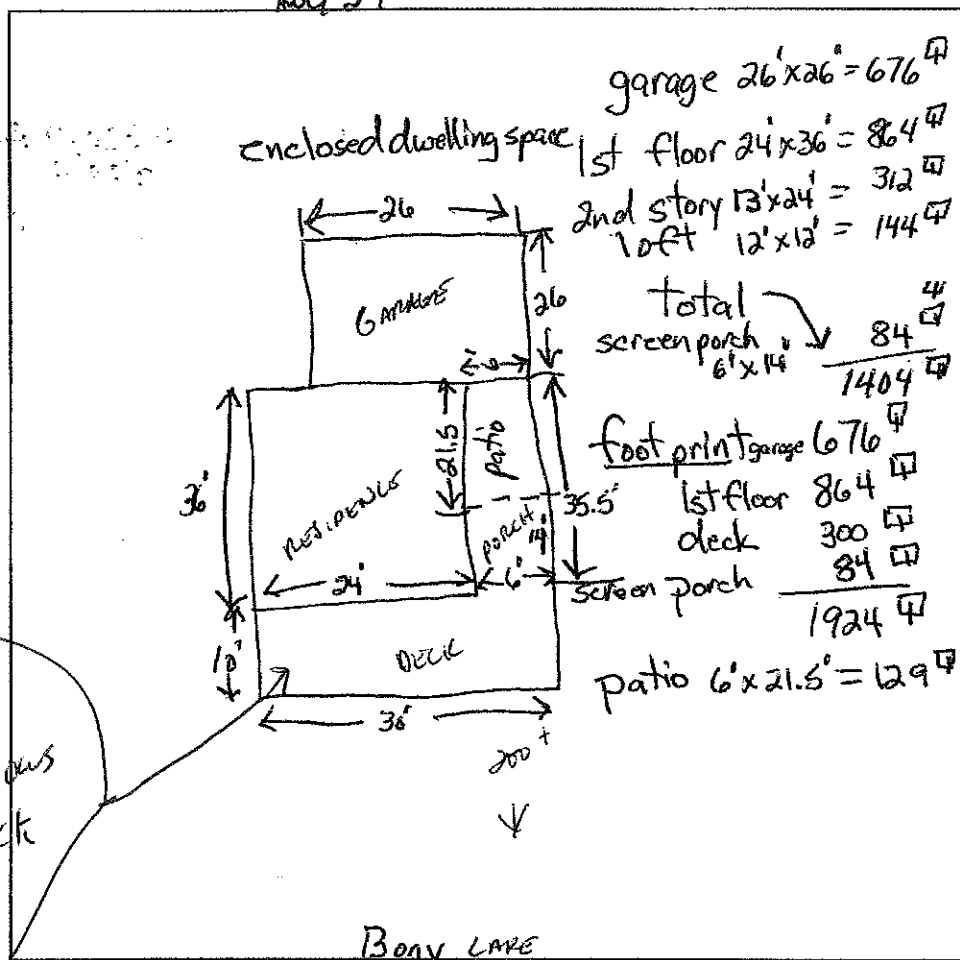 Aug 29
garage 26'x26" = 676 ⏍
enclosed dwelling space
1st floor 24'x36' = 864 ⏍
2nd story 13'x24' = 312 ⏍
loft 12'x12' = 144 ⏍
total
screen porch 84 ⏍
6'x14'
1404 ⏍
foot print garage 676 ⏍
1st floor 864 ⏍
deck 300 ⏍
screen porch 84 ⏍
1924 ⏍
patio 6'x21.5' = 129 ⏍
26
GARAGE
26
6
21.5
patio
36'
RESIDENCE
PORCH
14'
35.5'
24'
6'
10'
DECK
30'
200+
Bony LAKE